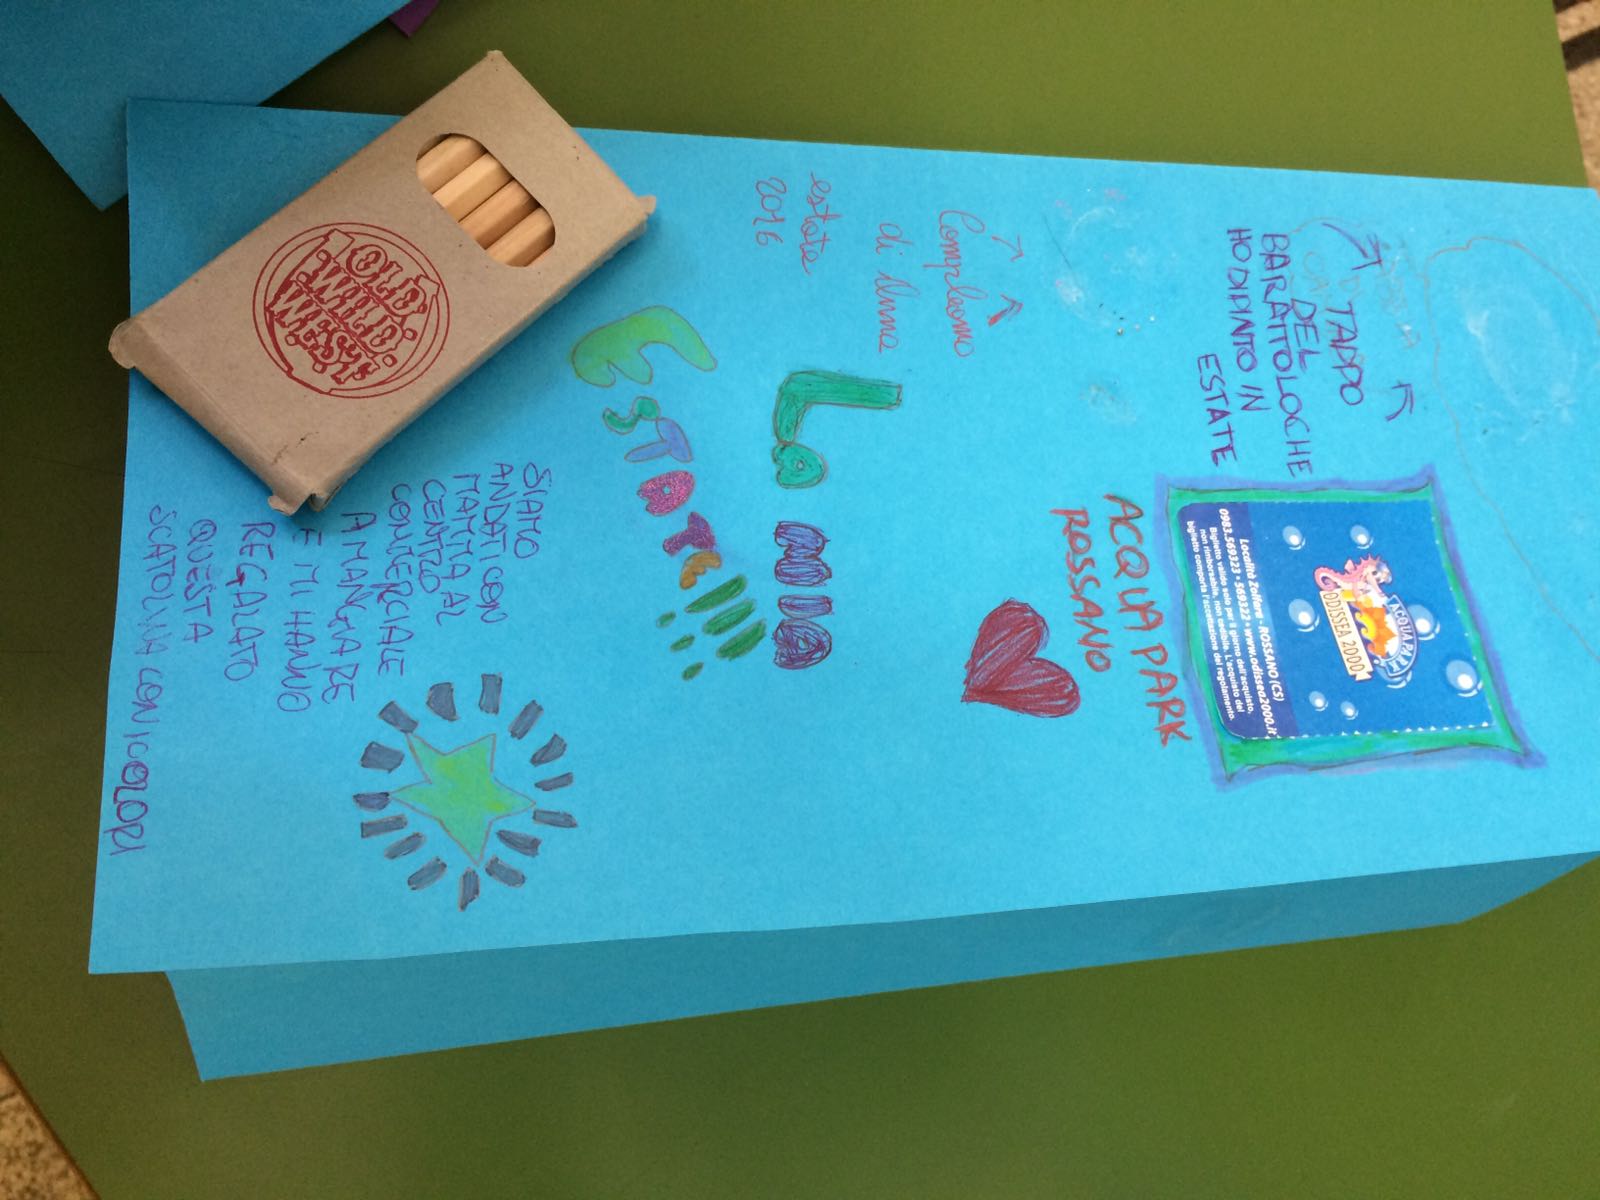 TAPPO
DEL
BARATTOLO CHE
HO DIPINTO IN
ESTATE
ACQUAPARK
ODISSEA 2000
Località Zolfara - ROSSANO (CS)
0983.569323 • 569322 • www.odissea2000.it
Biglietto valido solo per il giorno dell'acquisto,
non rimborsabile, non cedibile. L'acquisto del
biglietto comporta l'accettazione del regolamento.
ACQUA PARK
ROSSANO
Compleanno
di Anna
estate
2016
La mia
Estate!!!
SIAMO
ANDATI CON
MAMMA AL
CENTRO
COMERCIALE
A MANGIARE
E MI HANNO
REGALATO
QUESTA
SCATOLINA CON I COLORI
OLD
WILD
WEST